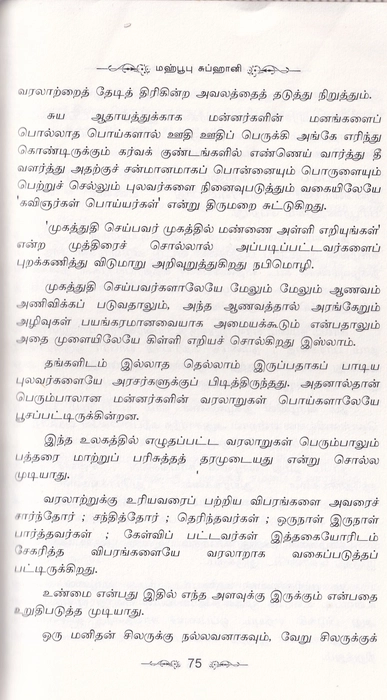 மஹ்பூபு சுப்ஹானி
வரலாற்றைத் தேடித் திரிகின்ற அவலத்தைத் தடுத்து நிறுத்தும்.
சுய ஆதாயத்துக்காக மன்னர்களின் மனங்களைப்
பொல்லாத பொய்களால் ஊதி ஊதிப் பெருக்கி அங்கே எரிந்து
கொண்டிருக்கும் கர்வக் குண்டங்களில் எண்ணெய் வார்த்து தீ
வளர்த்து அதற்குச் சன்மானமாகப் பொன்னையும் பொருளையும்
பெற்றுச் செல்லும் புலவர்களை நினைவுபடுத்தும் வகையிலேயே
'கவிஞர்கள் பொய்யர்கள்' என்று திருமறை சுட்டுகிறது.
'முகத்துதி செய்பவர் முகத்தில் மண்ணை அள்ளி எறியுங்கள்'
என்ற முத்திரைச் சொல்லால் அப்படிப்பட்டவர்களைப்
புறக்கணித்து விடுமாறு அறிவுறுத்துகிறது நபிமொழி.
முகத்துதி செய்பவர்களாலேயே மேலும் மேலும் ஆணவம்
அணிவிக்கப் படுவதாலும், அந்த ஆணவத்தால் அரங்கேறும்
அழிவுகள் பயங்கரமானவையாக அமையக்கூடும் என்பதாலும்
அதை முளையிலேயே கிள்ளி எறியச் சொல்கிறது இஸ்லாம்.
தங்களிடம் இல்லாத தெல்லாம் இருப்பதாகப் பாடிய
புலவர்களையே அரசர்களுக்குப் பிடித்திருந்தது. அதனால்தான்
பெரும்பாலான மன்னர்களின் வரலாறுகள் பொய்களாலேயே
பூசப்பட்டிருக்கின்றன.
இந்த உலகத்தில் எழுதப்பட்ட வரலாறுகள் பெரும்பாலும்
பத்தரை மாற்றுப் பரிசுத்தத் தரமுடையது என்று சொல்ல
முடியாது.
வரலாற்றுக்கு உரியவரைப் பற்றிய விபரங்களை அவரைச்
சார்ந்தோர் ; சந்தித்தோர் ; தெரிந்தவர்கள் ; ஒருநாள் இருநாள்
பார்த்தவர்கள் ; கேள்விப் பட்டவர்கள் இத்தகையோரிடம்
சேகரித்த விபரங்களையே வரலாறாக வகைப்படுத்தப்
பட்டிருக்கிறது.
உண்மை என்பது இதில் எந்த அளவுக்கு இருக்கும் என்பதை
உறுதிபடுத்த முடியாது.
ஒரு மனிதன் சிலருக்கு நல்லவனாகவும், வேறு சிலருக்குக்
75